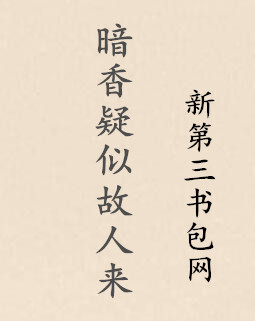 暗香疑似故人来
新第三书包网